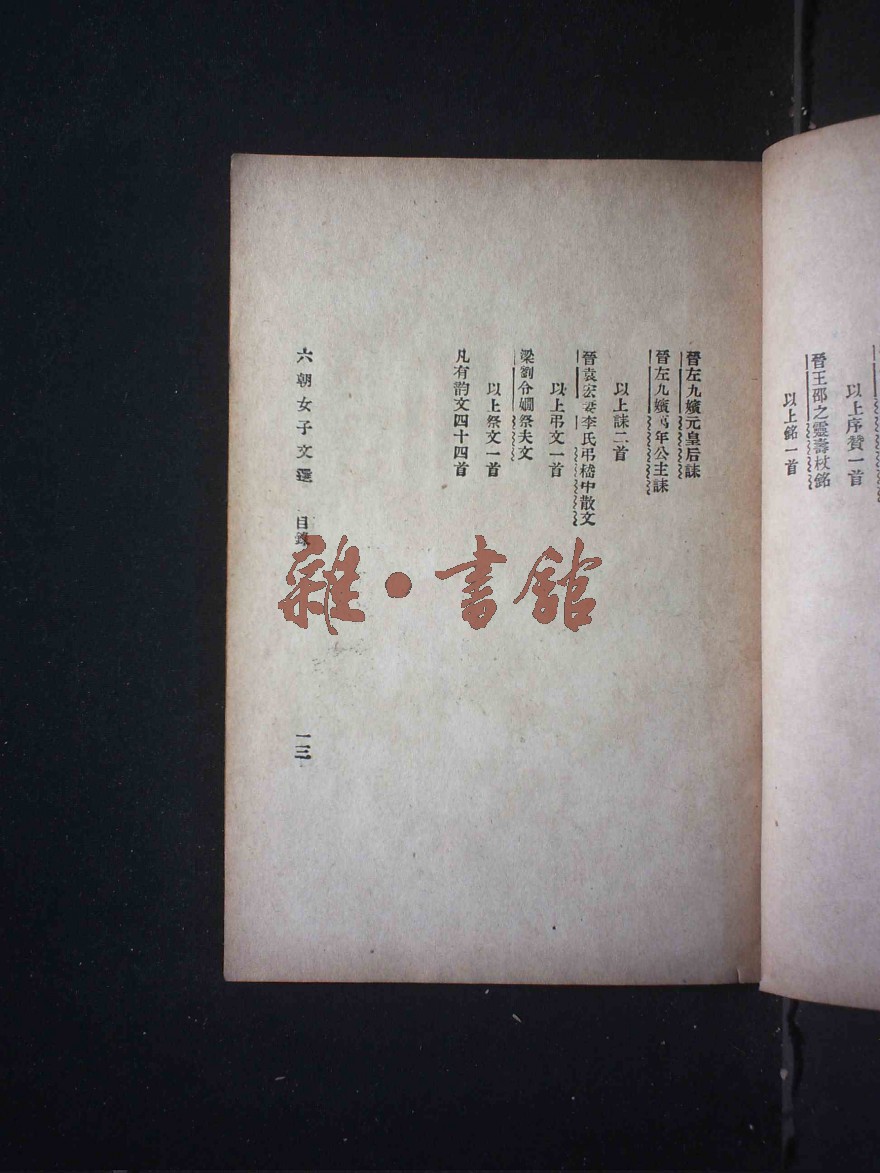 以上序贊一首
晉王邵之靈壽杖銘
以上銘一首
晉左九嬪元皇后誄
晉左九嬪萬年公主誄
以上誄二首
晉袁宏妻李氏弔嵇中散文
以上弔文一首
梁劉令嫺祭夫文
以上祭文一首
凡有韵文四十四首
六朝女子文選 目錄
一三
雜·書館